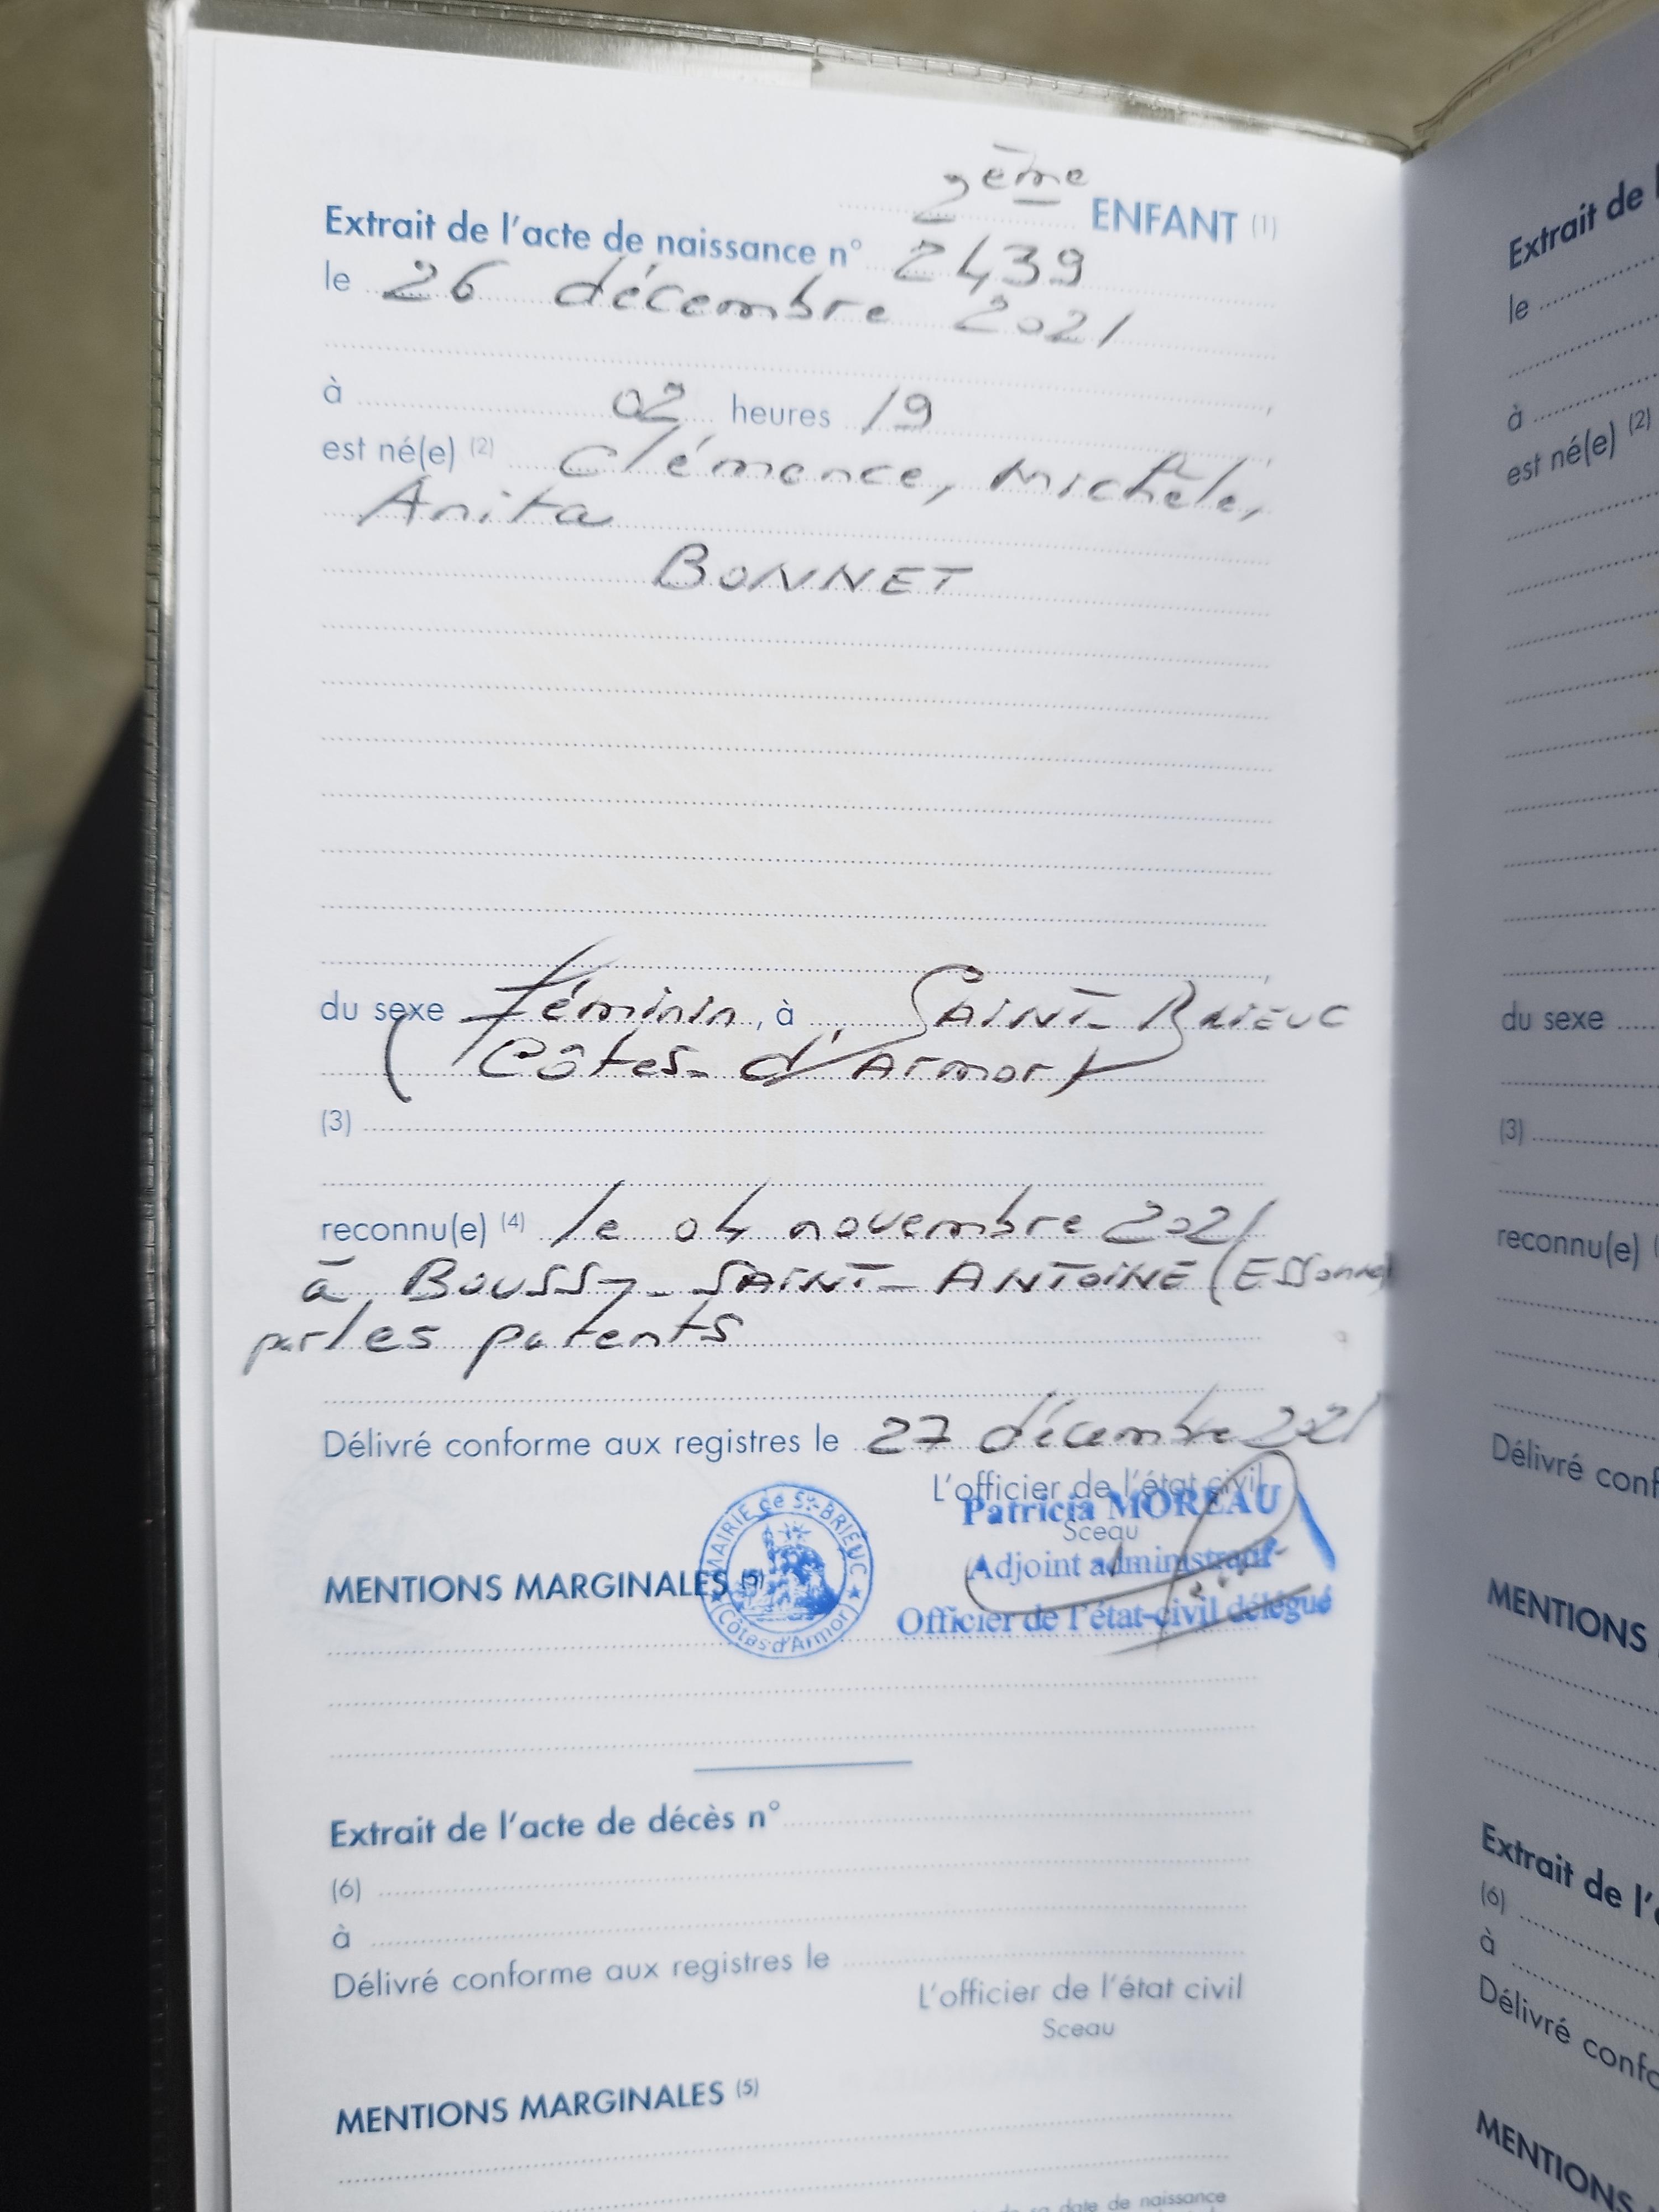 2ème ENFANT (1)
Extrait de l'acte de naissance n° 2439
le 26 décembre 2021
à 02 heures 19
est né(e) (2) Clémence, Michèle,
Anita
BONNET
du sexe féminin, à SAINT-BRIEUC
(Côtes-d'Armor)
(3)
reconnu(e) (4) le 04 novembre 2021
à BOUSSY-SAINT-ANTOINE (Essonne)
par les parents
Délivré conforme aux registres le 27 décembre 2021
L'officier de l'état civil
Patricia MOREAU
Sceau
Adjoint administratif
Officier de l'état-civil délégué
MAIRIE de St-BRIEUC
(Côtes d'Armor)
MENTIONS MARGINALES (5)
Extrait de l'acte de décès n°
(6)
à
Délivré conforme aux registres le
L'officier de l'état civil
Sceau
MENTIONS MARGINALES (5)
date de naissance
Extrait de l
le
à
est né(e) (2)
du sexe
(3)
reconnu(e)
Délivré conf
MENTIONS
Extrait de l'
(6)
à
Délivré confo
MENTIONS